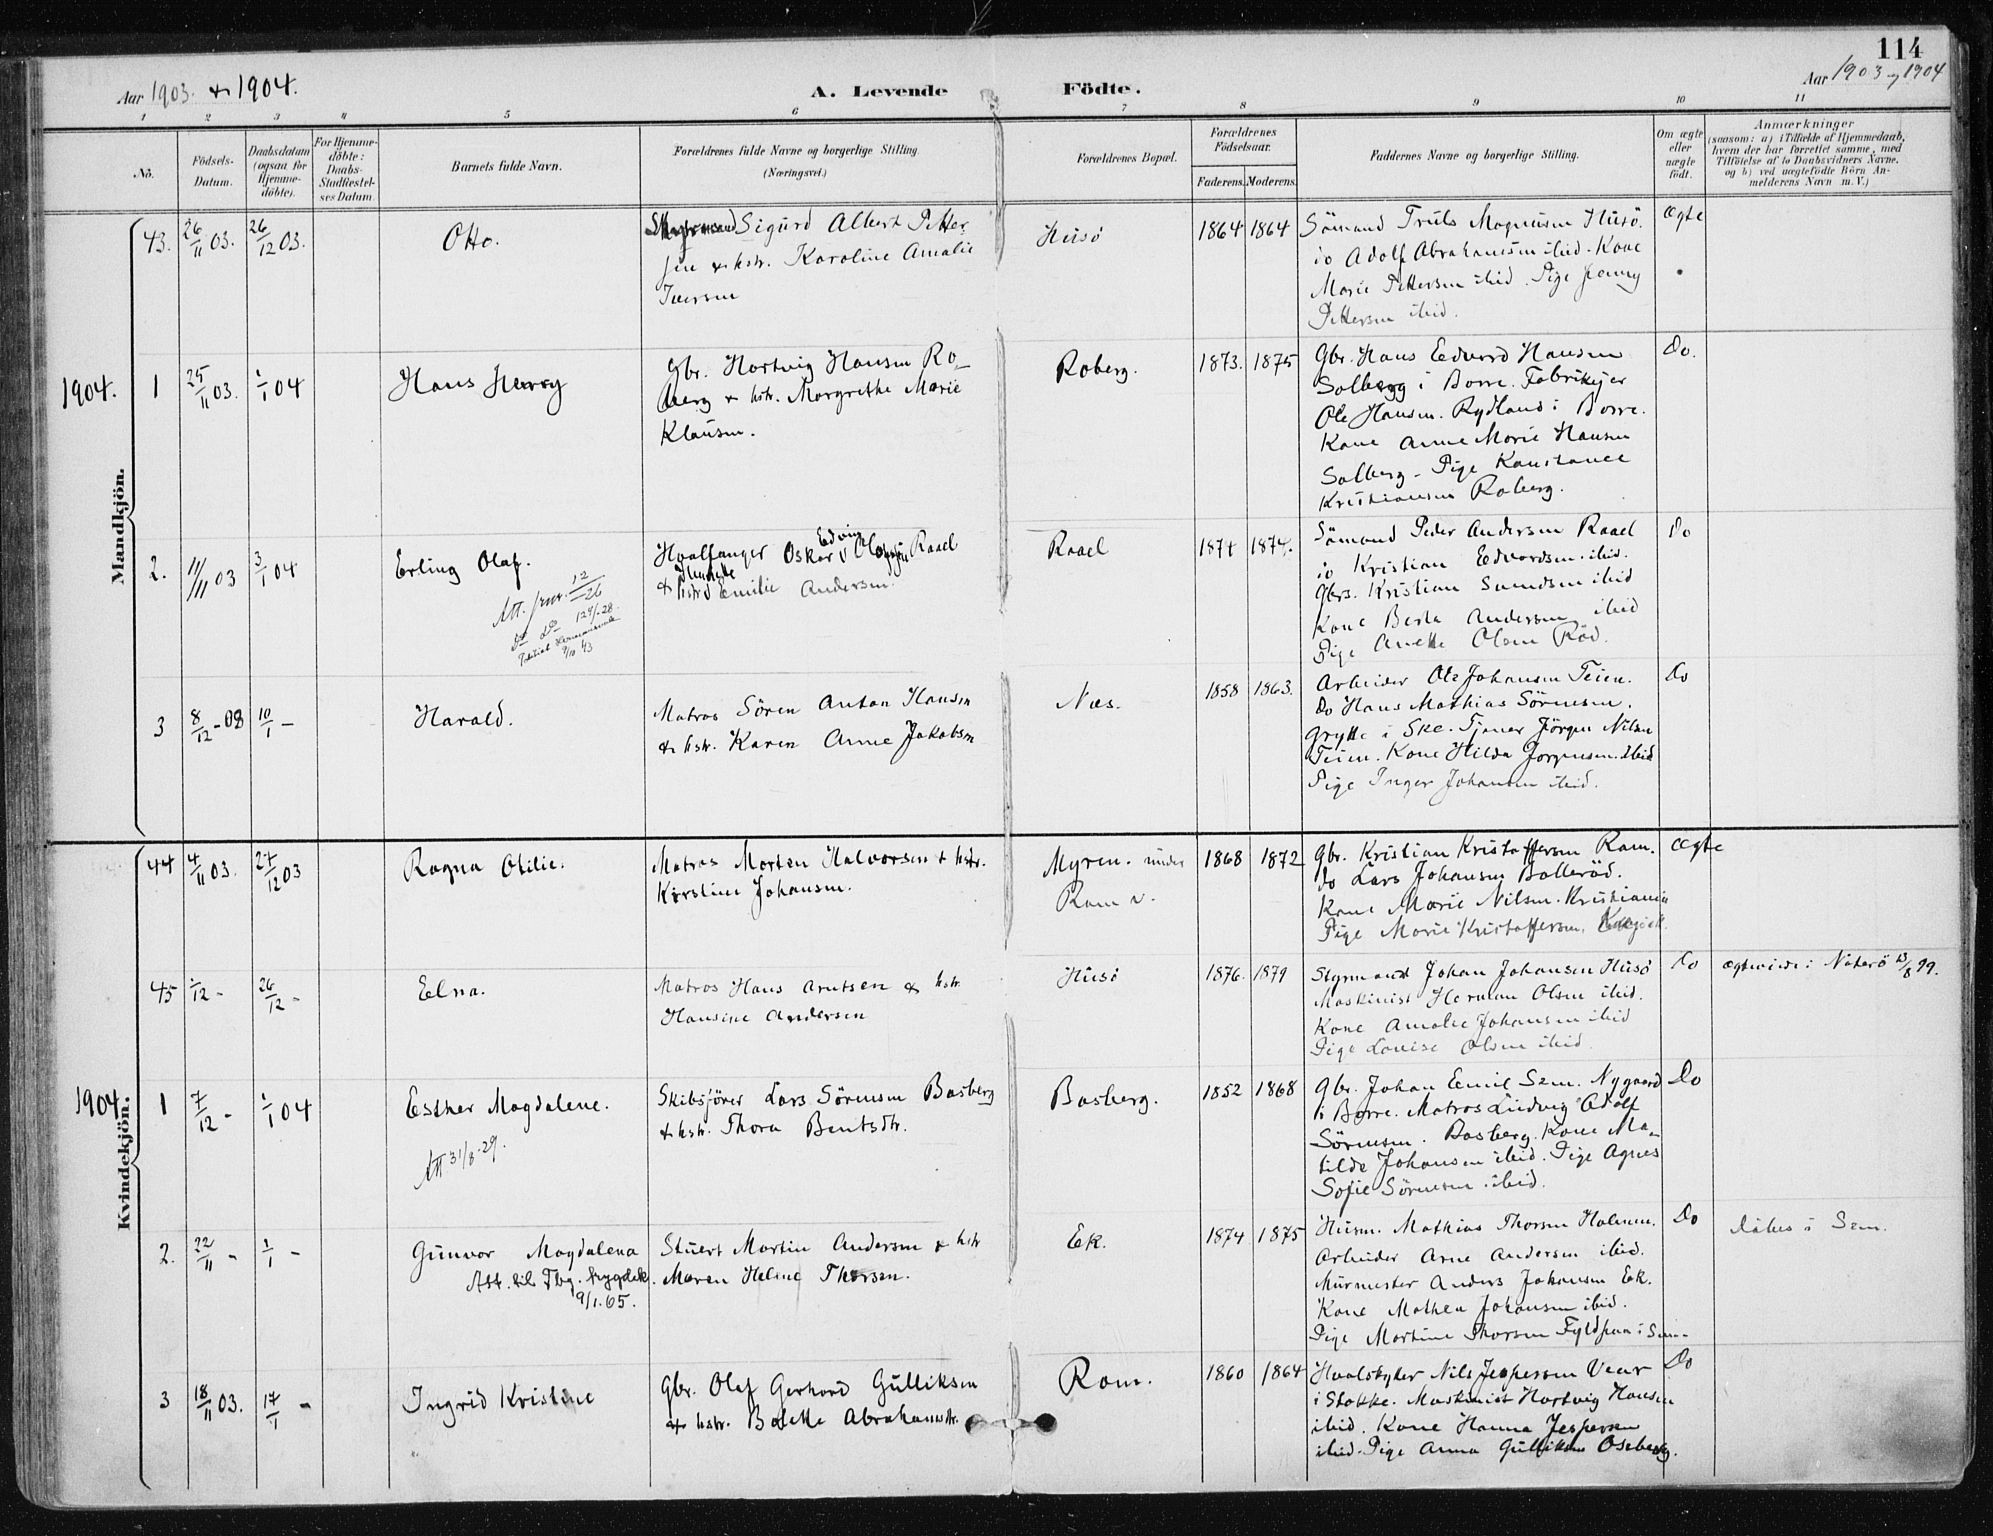 114
Aar 1903. & 1904.
A. Levende Födte.
Aar 1903 og 1904
1 2 3 4 5 6 7 8 9 10 11
No.
Födsels-
Datum.
Daabsdatum
(ogsaa for
Hjemme-
döbte).
For Hjemme-
döbte:
Daabs-
Stadfæstel-
ses Datum.
Barnets fulde Navn.
Forældrenes fulde Navne og borgerlige Stilling.
(Næringsvei.)
Forældrenes Bopæl.
Forældrenes
Födselsaar.
Faderens. Moderens.
Faddernes Navne og borgerlige Stilling.
Om ægte
eller
uægte
födt.
Anmærkninger
(saasom: a) i Tilfælde af Hjemmedaab,
hvem der har forrettet samme, med
Tilföielse af to Daabsvidners Navne.
og b) ved uægtefödte Börn An-
melderens Navn m. V.)
Mandkjön.
43. 26/11 03. 26/12 03.
Otto.
Sigurd Albert Petter
sen & hstr. Karoline Amalie
Iversen
Husö
1864 1864
Sömand Truls Magnusen Husö.
do Adolf Abrahamsen ibid. Kone
Marie Pettersen ibid. Pige Jenny
Pettersen ibid.
ægte
1904.
1 25/11 03. 1/1 04
Hans Harry
Gbr. Hartvig Hansen Ro-
berg & hstr. Margrethe Marie
Klausen.
Roberg.
1873. 1875
Gbr. Hans Edvard Hansen
Solberg i Borre. Fabrikejer
Ole Hansen. Rydland i Borre.
Kone Anne Marie Hansen
Solberg - Pige Konstance
Kristiansen Roberg.
Do.
2. 11/11 03 3/1 04
Erling Olaf.
Att. 1-2/26
Do Do 12 4/-28.
9/10 43
Hvalfanger Oskar Edvin Olsen Raael
& hstr Emilie Andersen.
Raael
1871 1874.
Sömand Peder Andersen Raael
do Kristian Edvardsen ibid.
Gbrs. Kristian Samdsen ibid
Kone Berta Andersen ibid
Pige Anette Olsen Röd.
Do
3 8/12 - 03 10/1 -
Harald.
Matros Sören Anton Hansen
& hstr. Karen Anne Jakobsen
Næs.
1858 1863.
Arbeider Ole Johansen Teien.
Do Hans Mathias Sörensen.
Grytte i Ske. Tjener Jörgen Nilsen
Teien. Kone Hilda Jörgensen. ibid
Pige Inger Johansen ibid.
Do
Kvindekjön.
44 4/11 03. 27/12 03
Ragna Otilie.
Matros Morten Halvorsen & hstr.
Kirstine Johansen.
Myren. under
Ram v.
1868 1872
Gbr. Kristian Kristoffersen Ram.
do Lars Johansen Bolleröd.
Kone Marie Nilsen. Kristiania
Pige Marie Kristoffersen.
ægte
45 1/12 - 26/12 -
Elna.
Matros Hans Arntsen & hstr.
Hansine Andersen
Husö
1876. 1879
Styrmand Johan Johansen Husö
Maskinist Herman Olsen ibid.
Kone Amalie Johansen ibid
Pige Louise Olsen ibid
Do
ægteviede i Nöterö 13/8 99.
1904.
1 7/12 - 1/1 04
Esther Magdalene.
Att 31/8-29.
Skibsförer Lars Sörensen Basberg
& hstr. Thora Berntsdtr.
Basberg.
1852 1868
Gbr. Johan Emil Sem. Nygaard
i Borre. Matros Ludvig Adolf
Sörensen. Basberg. Kone Ma-
tilde Johansen ibid. Pige Agnes
Sofie Sörensen ibid.
Do
2. 22/11 - 1/1 -
Gunvor Magdalena
Att. til Tbg. trygdek.
9/1.65.
Stuert Martin Andersen & hstr
Maren Heline Thorsen.
Ek.
1874 1875
Husm. Mathias Thorsen Holmen.
Arbeider Arne Andersen ibid.
Murmester Anders Johansen Ek.
Kone Mathea Johansen ibid.
Pige Martine Thorsen Fyldpaa i Sem.
Do
Döbes i Sem.
3 18/11 03. 17/1 -
Ingrid Kristine
Gbr. Olaf Gerhard Gulliksen
& hstr. Bolette Abrahamsdtr.
Ram.
1860 1864
Hvalskytter Nils Jespersen Vear
i Stokke. Maskinist Hartvig Hansen
ibid. Kone Hanna Jespersen
ibid. Pige Anna Gulliksen Oseberg.
Do